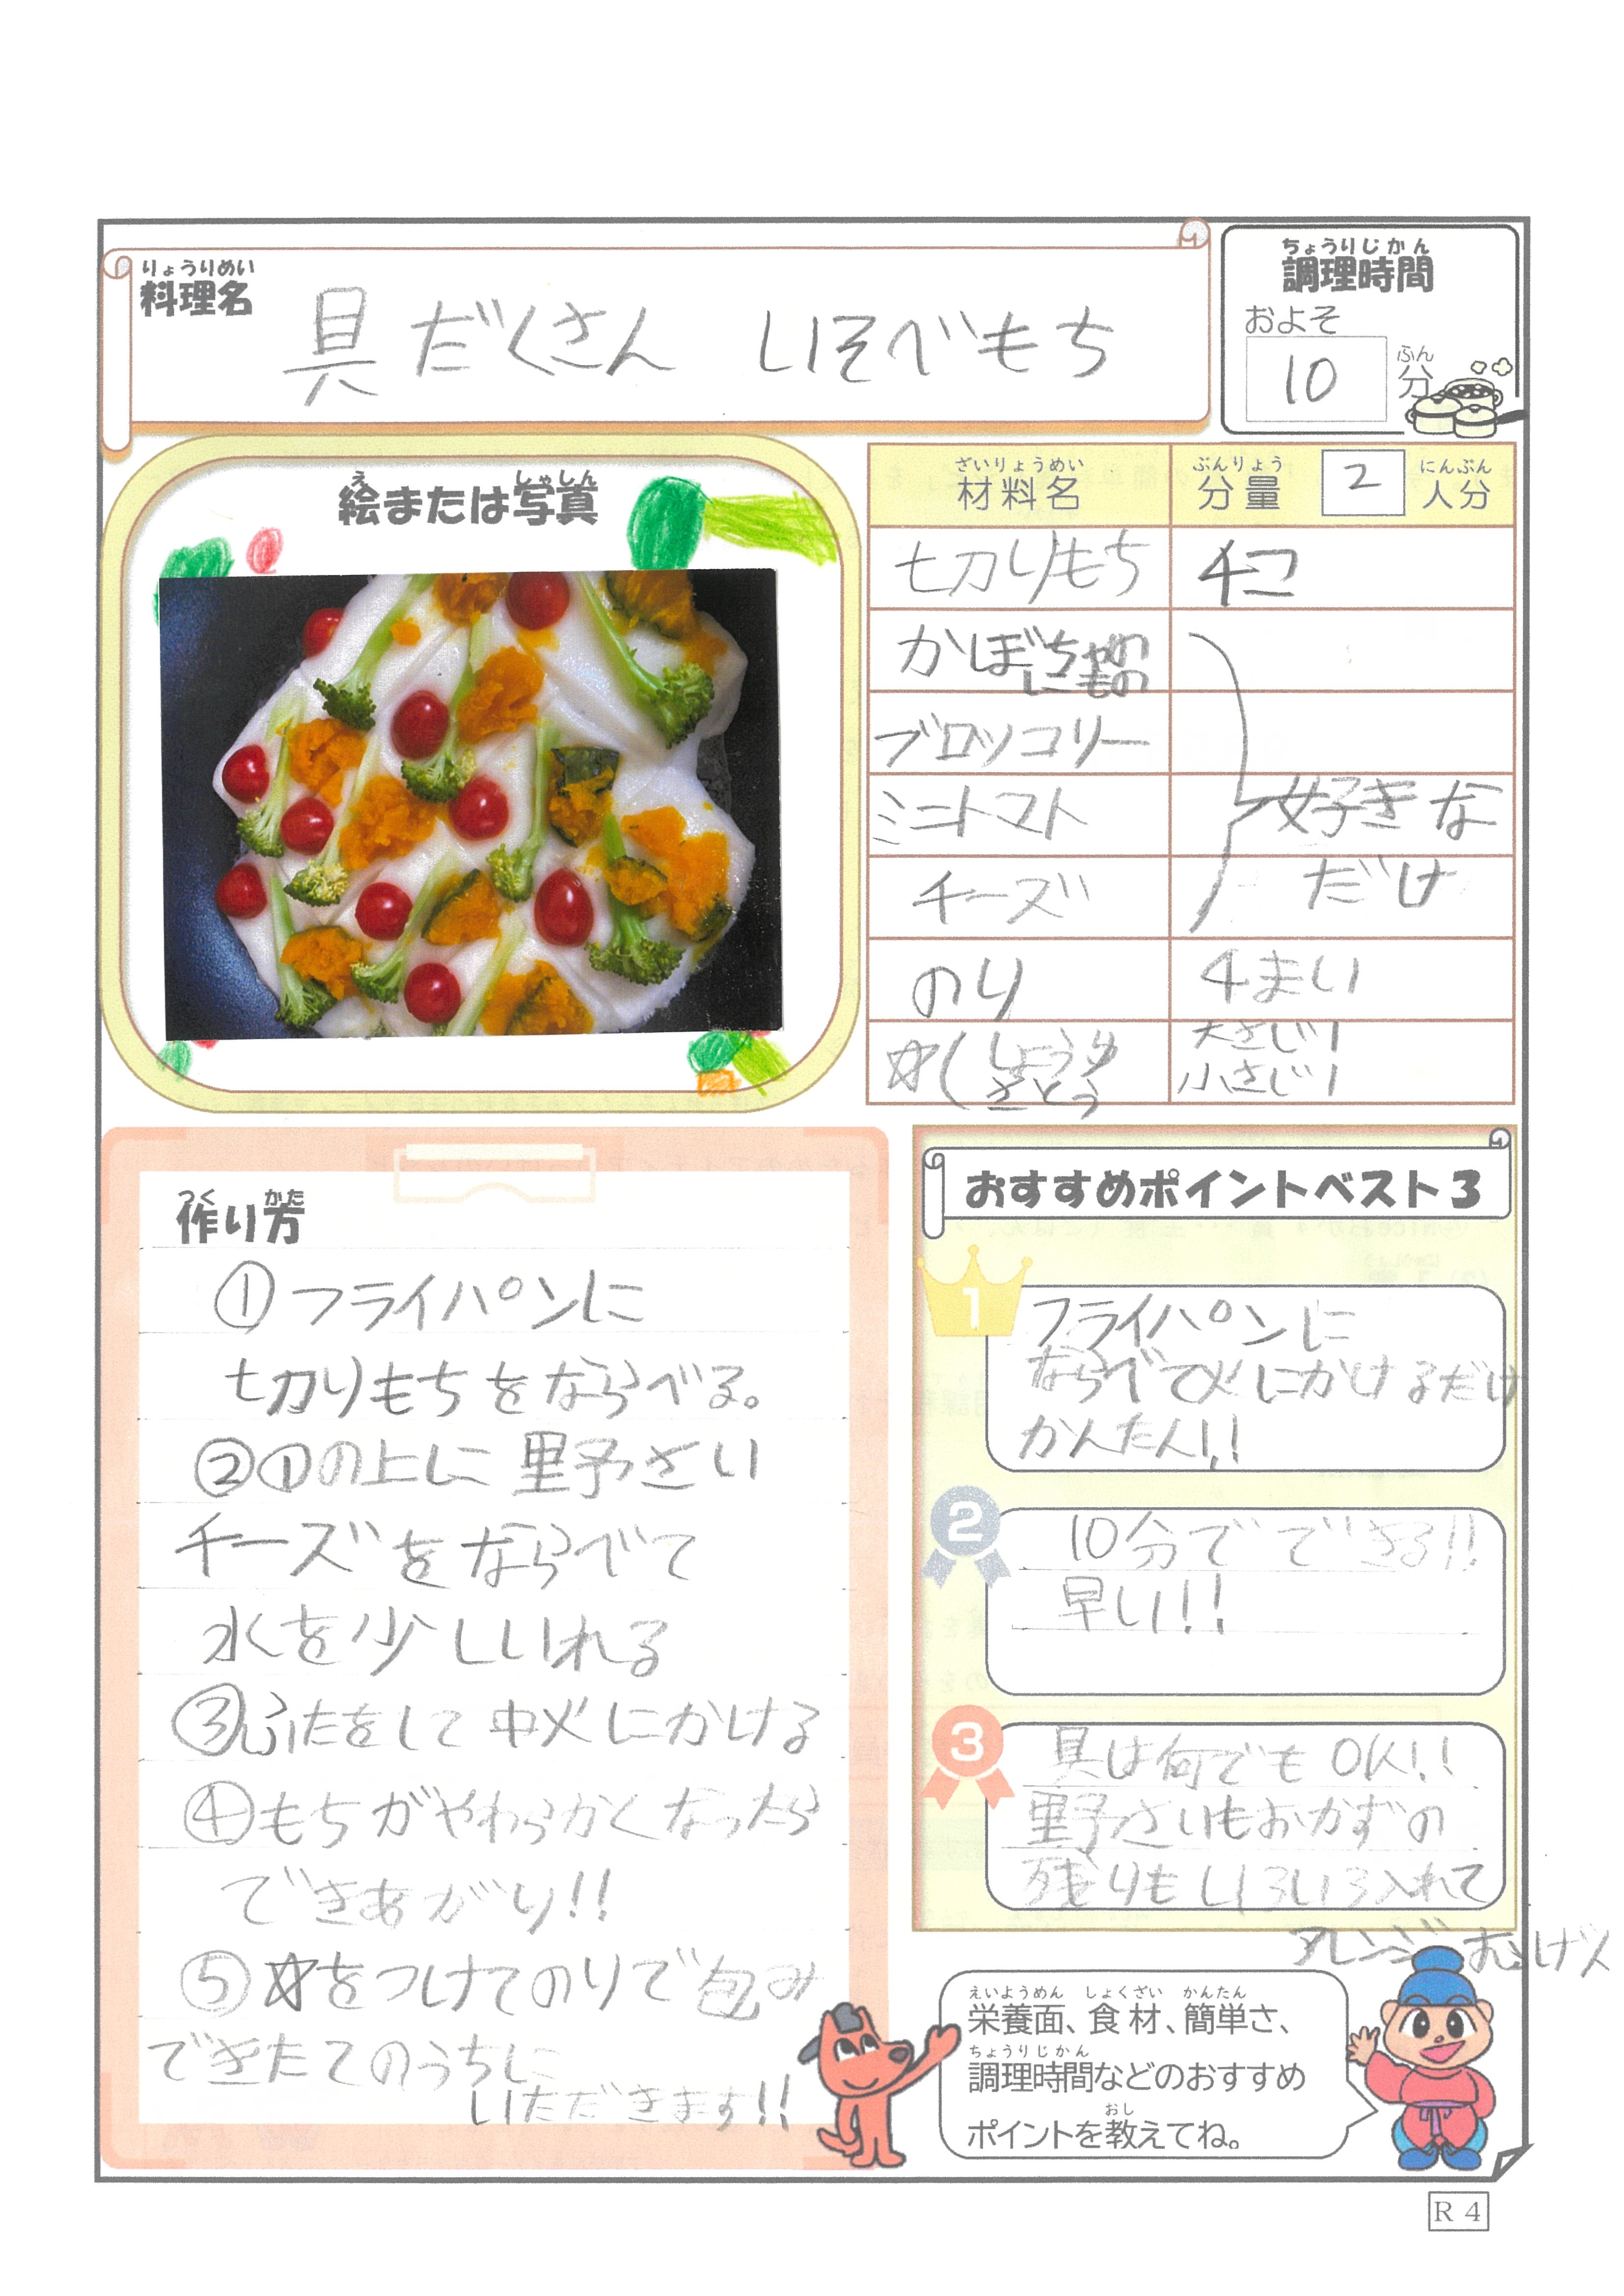 りょうりめい
料理名
具だくさん いそべもち
ちょうりじかん
調理時間
およそ
10
ふん
分
え しゃしん
絵または写真
ざいりょうめい
材料名
ぶんりょう
分量
2
にんぶん
人分
切りもち 4コ
かぼちゃの
にもの
ブロッコリー
ミニトマト
チーズ
好きな
だけ
のり 4まい
☆( しょうゆ 大さじ1
さとう 小さじ1
つく かた
作り方
①フライパンに
切りもちをならべる。
②①の上に野さい
チーズをならべて
水を少しいれる
③ふたをして中火にかける
④もちがやわらかくなったら
できあがり!!
⑤☆をつけてのりで包み
できたてのうちに
いただきます!!
おすすめポイントベスト3
1
フライパンに
ならべて火にかけるだけ
かんたん!!
2
10分でできる!!
早い!!
3
具は何でもOK!!
野さいもおかずの
残りもいろいろ入れて
アレンジ
えいようめん しょくざい かんたん
栄養面、食材、簡単さ、
ちょうりじかん
調理時間などのおすすめ
おし
ポイントを教えてね。
R4